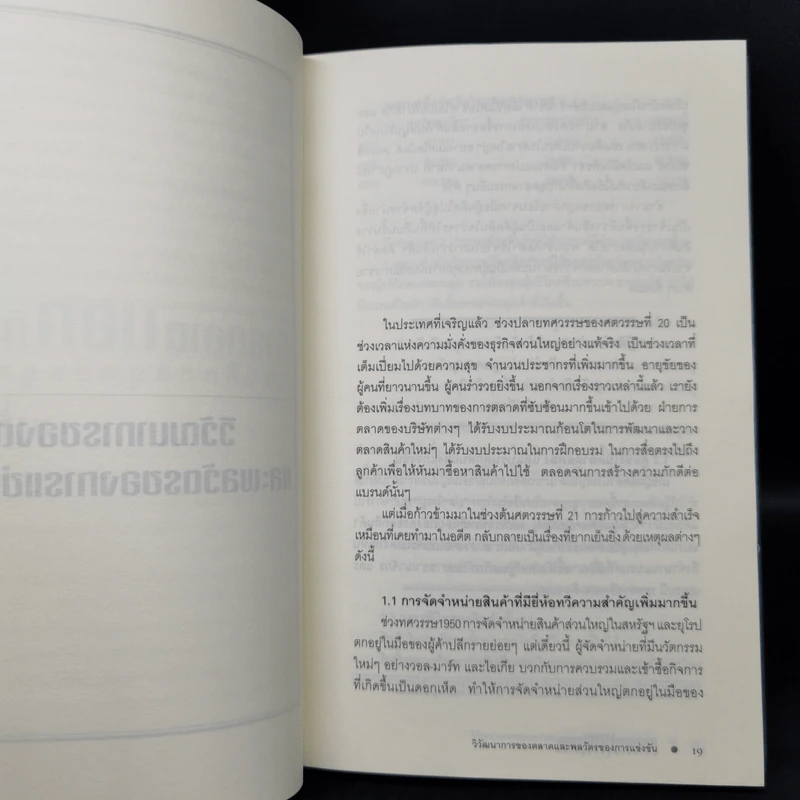 ในประเทศที่เจริญแล้ว ช่วงปลายทศวรรษของศตวรรษที่ 20 เป็น
ช่วงเวลาแห่งความมั่งคั่งของธุรกิจส่วนใหญ่อย่างแท้จริง เป็นช่วงเวลาที่
เต็มเปี่ยมไปด้วยความสุข จำนวนประชากรที่เพิ่มมากขึ้น อายุขัยของ
ผู้คนที่ยาวนานขึ้น ผู้คนร่ำรวยยิ่งขึ้น นอกจากเรื่องราวเหล่านี้แล้ว เรายัง
ต้องเพิ่มเรื่องบทบาทของการตลาดที่ซับซ้อนมากขึ้นเข้าไปด้วย ฝ่ายการ
ตลาดของบริษัทต่างๆ ได้รับงบประมาณก้อนโตในการพัฒนาและวาง
ตลาดสินค้าใหม่ๆ ได้รับงบประมาณในการฝึกอบรม ในการสื่อตรงไปถึง
ลูกค้าเพื่อให้หันมาซื้อหาสินค้าไปใช้ ตลอดจนการสร้างความภักดีต่อ
แบรนด์นั้นๆ
แต่เมื่อก้าวข้ามมาในช่วงต้นศตวรรษที่ 21 การก้าวไปสู่ความสำเร็จ
เหมือนที่เคยทำมาในอดีต กลับกลายเป็นเรื่องที่ยากเย็นยิ่ง ด้วยเหตุผลต่างๆ
ดังนี้
1.1 การจัดจำหน่ายสินค้าที่มียี่ห้อทวีความสำคัญเพิ่มมากขึ้น
ช่วงทศวรรษ1950 การจัดจำหน่ายสินค้าส่วนใหญ่ในสหรัฐฯ และยุโรป
ตกอยู่ในมือของผู้ค้าปลีกรายย่อยๆ แต่เดี๋ยวนี้ ผู้จัดจำหน่ายที่มีนวัตกรรม
ใหม่ๆ อย่างวอล-มาร์ท และไอเกีย บวกกับการควบรวมและเข้าซื้อกิจการ
ที่เกิดขึ้นเป็นดอกเห็ด ทำให้การจัดจำหน่ายส่วนใหญ่ตกอยู่ในมือของ
วิวัฒนาการของตลาดและพลวัตรของการแข่งขัน ● 19